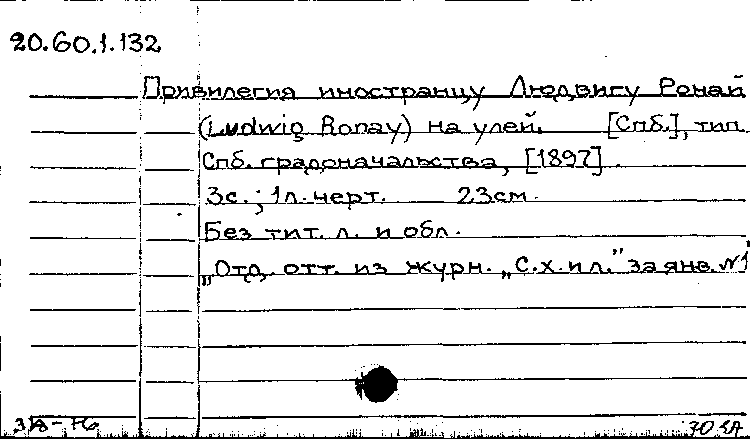 20.60.1.132
Привилегия иностранцу Людвигу Ронай
(Ludwig Ronay) на улей. [Спб.], тип.
Спб. градоначальства, [1897].
3с.; 1л. черт. 23см.
Без тит. л. и обл.
„Отд. отт. из журн. „С.х. и л." за янв. №1